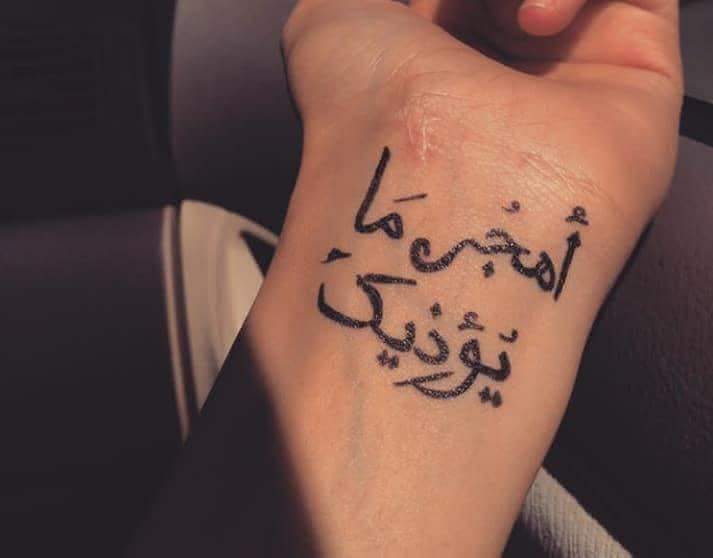 أهجُر مَا
يَؤذيك